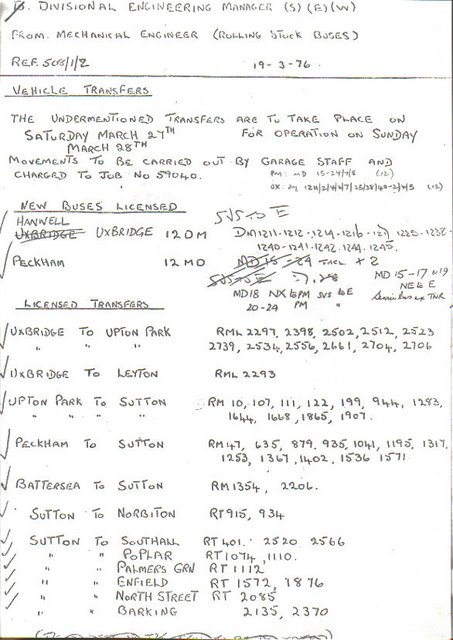 DIVISIONAL ENGINEERING MANAGER (S) (E) (W)
FROM. MECHANICAL ENGINEER (ROLLING STOCK BUSES)
REF. 508/1/2 19-3-76
VEHICLE TRANSFERS
THE UNDERMENTIONED TRANSFERS ARE TO TAKE PLACE ON
SATURDAY MARCH 27TH FOR OPERATION ON SUNDAY
MARCH 28TH
MOVEMENTS TO BE CARRIED OUT BY GARAGE STAFF AND
CHARGED TO JOB NO 59040.
PM: MD 15-24/7/8 (12)
(12)
NEW BUSES LICENSED
HANWELL
UXBRIDGE UXBRIDGE 12 DM DM 1211-1212-1214-1216-1217 1225-1232-
1240-1241-1242-1244-1245.
PECKHAM 12 MD MD 15 - 24 + 2
MD 15-17 019
MD18 NX
20-24 PM
LICENSED TRANSFERS
UXBRIDGE TO UPTON PARK RML 2297, 2398, 2502, 2512, 2523
" " " 2739, 2534, 2556, 2661, 2704, 2706
UXBRIDGE TO LEYTON RML 2293
UPTON PARK TO SUTTON RM 10, 107, 111, 122, 199, 944, 1283,
" " " " 1644, 1668, 1865, 1907.
PECKHAM TO SUTTON RM 47, 635, 879, 935, 1041, 1195, 1317,
1253, 1367, 1402, 1536 1571
BATTERSEA TO SUTTON RM 1354, 2206.
SUTTON TO NORBITON RT 915, 934
SUTTON TO SOUTHALL RT 401. 2520 2566
" " POPLAR RT 1074, 1110.
" " PALMERS GRN RT 1112
" " ENFIELD RT 1572, 1876
" " NORTH STREET RT 2085
" " BARKING 2135, 2370